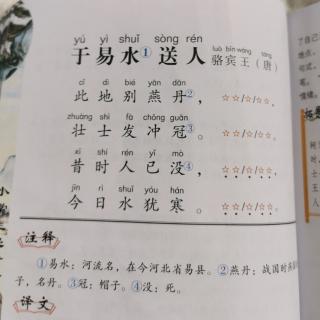 yú yì shuǐ sòng rén
于易水①送人
luò bīn wáng táng
骆宾王（唐）
cǐ dì bié yān dān
此地别燕丹②，☆☆/☆/☆☆，
zhuàng shì fà chōng guān
壮士发冲冠③。☆☆/☆/☆☆。
xī shí rén yǐ mò
昔时人已没④，☆☆/☆/☆☆，
jīn rì shuǐ yóu hán
今日水犹寒。☆☆/☆/☆☆。
注释
①易水：河流名，在今河北省易县。②燕丹：战国时燕
子，名丹。③冠：帽子。④没：死。
译文